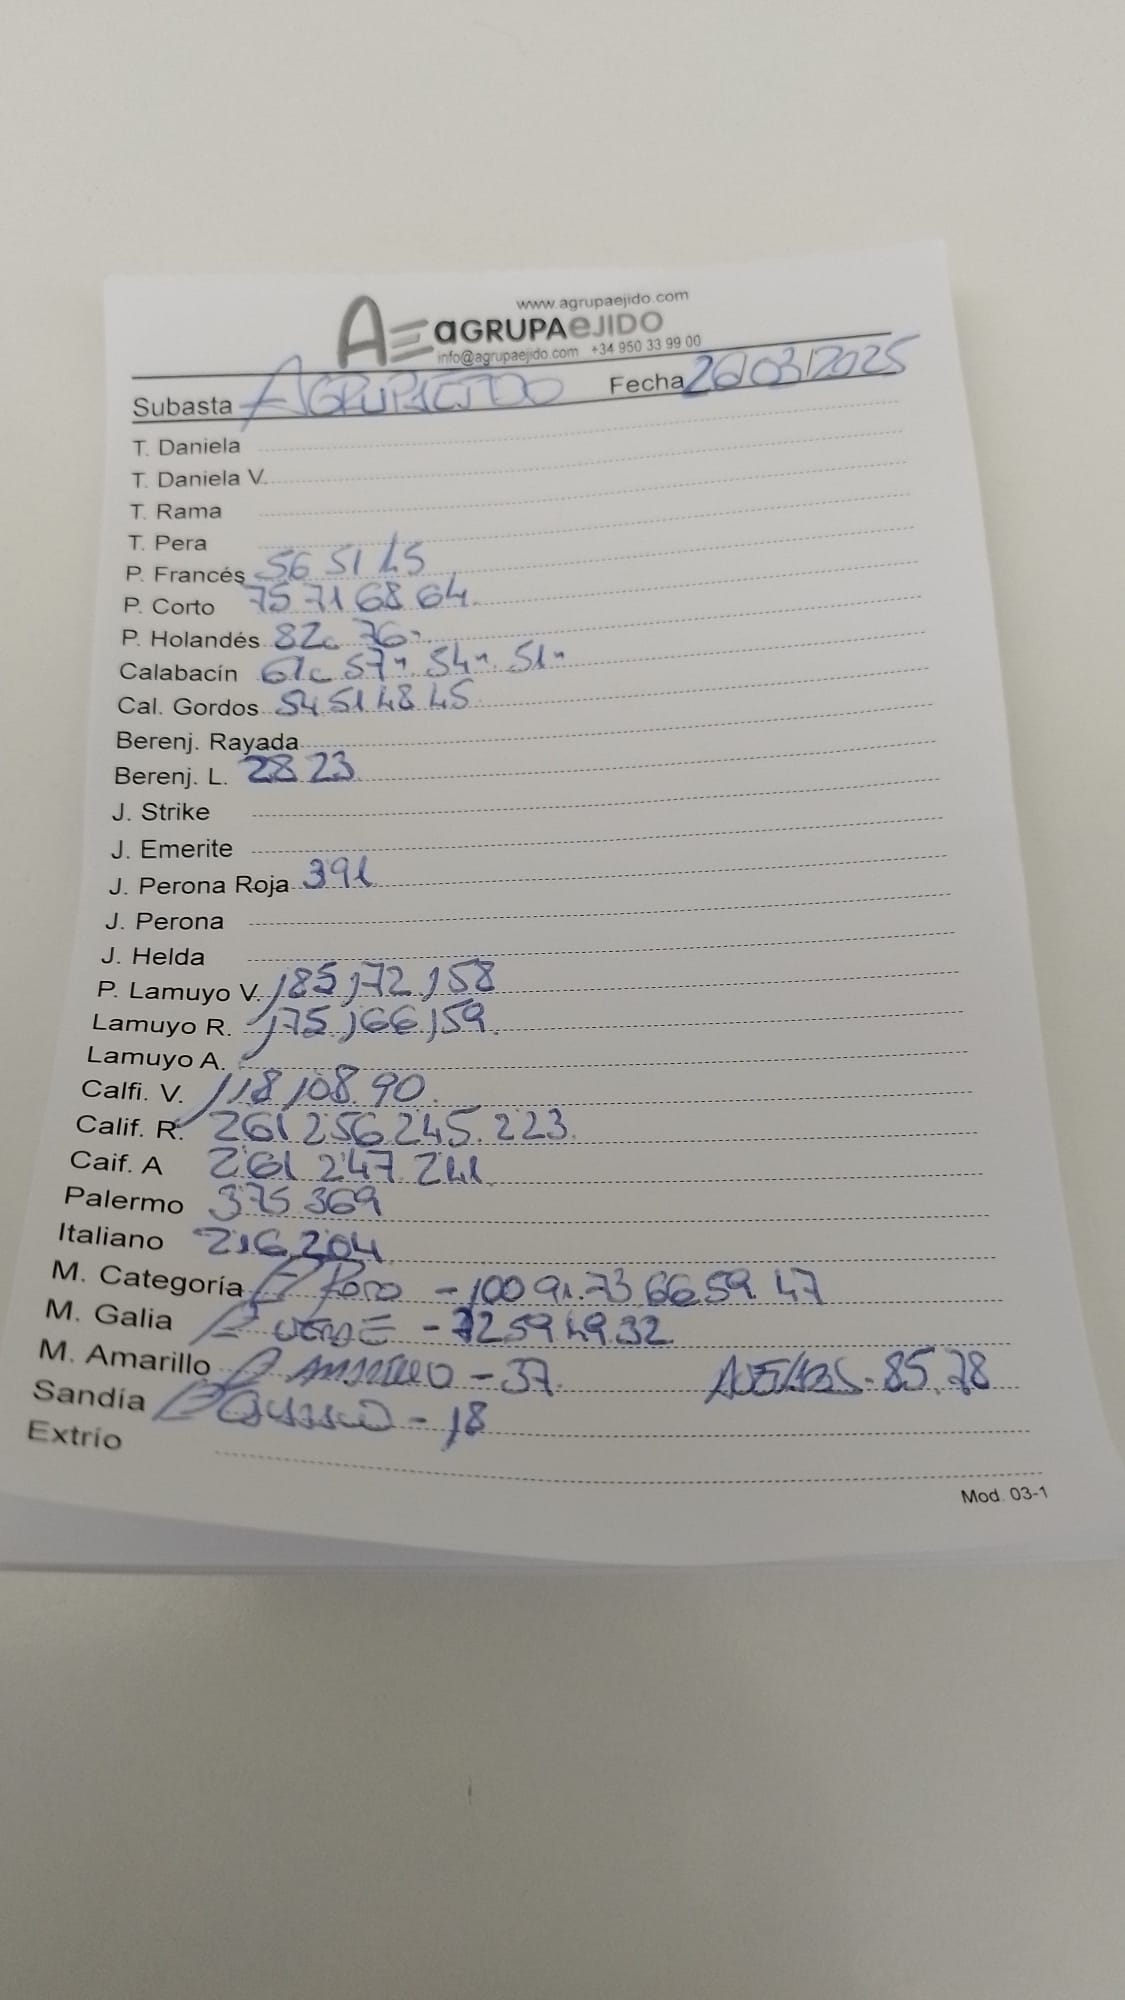 www.agrupaejido.com
AE aGRUPAeJIDO
info@agrupaejido.com +34 950 33 99 00
Subasta AGRUPAEJIDO Fecha 26/03/2025
T. Daniela
T. Daniela V.
T. Rama
T. Pera
P. Francés 56 51 45
P. Corto 75 71 68 64.
P. Holandés 82c 76"
Calabacín 61c 57". 54". 51"
Cal. Gordos 54 51 48 45
Berenj. Rayada
Berenj. L. 28 23
J. Strike
J. Emerite
J. Perona Roja 391
J. Perona
J. Helda
P. Lamuyo V. 185 172. 158
Lamuyo R. 175. 166 159.
Lamuyo A.
Calfi. V. 118 108. 90.
Calif. R. 261 256 245. 223.
Caif. A 261 247. 241.
Palermo 375 369
Italiano 216 204
M. Categoría P. Rojo - 100 91. 73 66 59. 47
M. Galia P. VERDE - 72 59 49. 32
M. Amarillo P. AMARILLO - 37. 85. 78
Sandía - 18
Extrío
Mod. 03-1